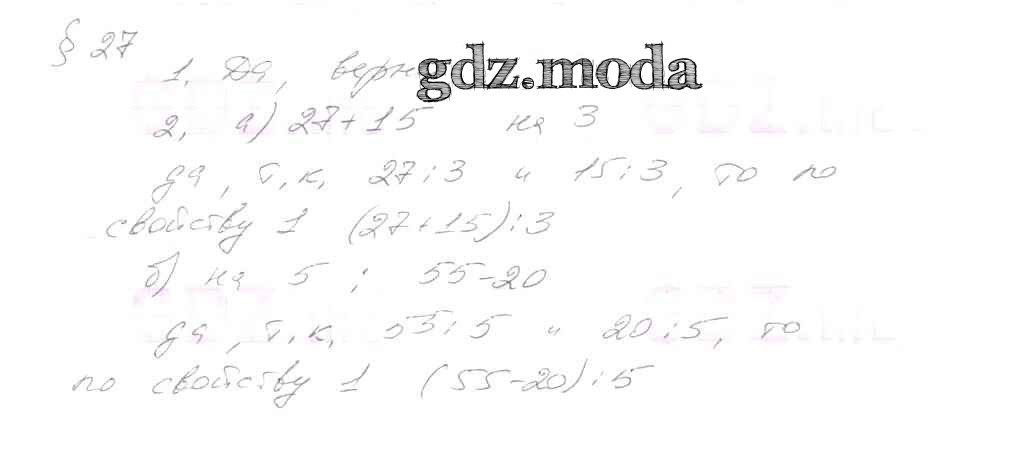 § 27
1. Да, верн gdz.moda
2. а) 27+15 на 3
да, т.к. 27:3 и 15:3, то по
свойству 1 (27+15):3
б) на 5 ; 55-20
да, т.к. 55:5 и 20:5, то
по свойству 1 (55-20):5